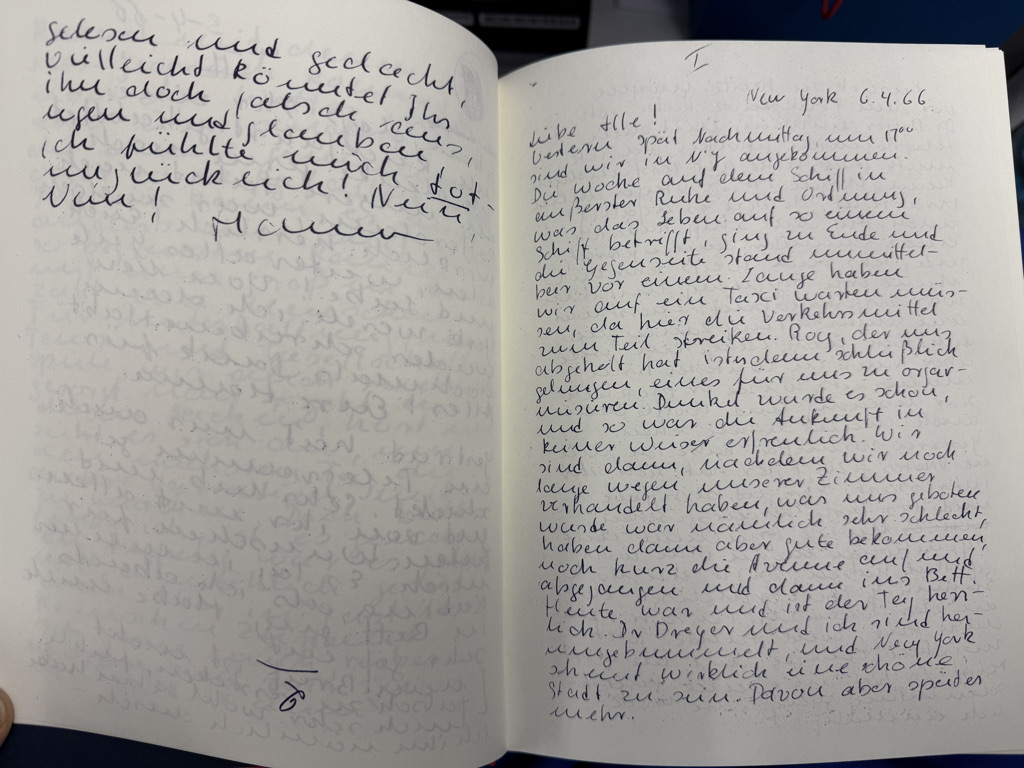 gelesen und gedacht,
vielleicht könntet Ihr
ihn doch falsch aus-
legen und glauben,
ich fühlte mich tot-
unglücklich! Nein,
Nein!
Hannen
6
I
New York 6.4.66.
Liebe Alle!
Gestern spät Nachmittag, um 17⁰⁰
sind wir in N.Y. angekommen.
Die Woche auf dem Schiff in
äußerster Ruhe und Ordnung,
was das Leben auf so einem
Schiff betrifft, ging zu Ende und
die Gegenseite stand unmittel-
bar vor einem. Lange haben
wir auf ein Taxi warten müs-
sen, da hier die Verkehrsmittel
zum Teil streiken. Roy, der uns
abgeholt hat ist's dann schließlich
gelungen, eines für uns zu organ-
isieren. Dunkel wurde es schon,
und so war die Ankunft in
keiner Weise erfreulich. Wir
sind dann, nachdem wir noch
lange wegen unserer Zimmer
verhandelt haben, was uns geboten
wurde war nämlich sehr schlecht,
haben dann aber gute bekommen,
noch kurz die Avenue auf und
abgegangen und dann ins Bett.
Heute war und ist der Tag herr-
lich. Dr Dreyer und ich sind her-
umgebummelt, und New York
scheint wirklich eine schöne
Stadt zu sein. Davon aber später
mehr.